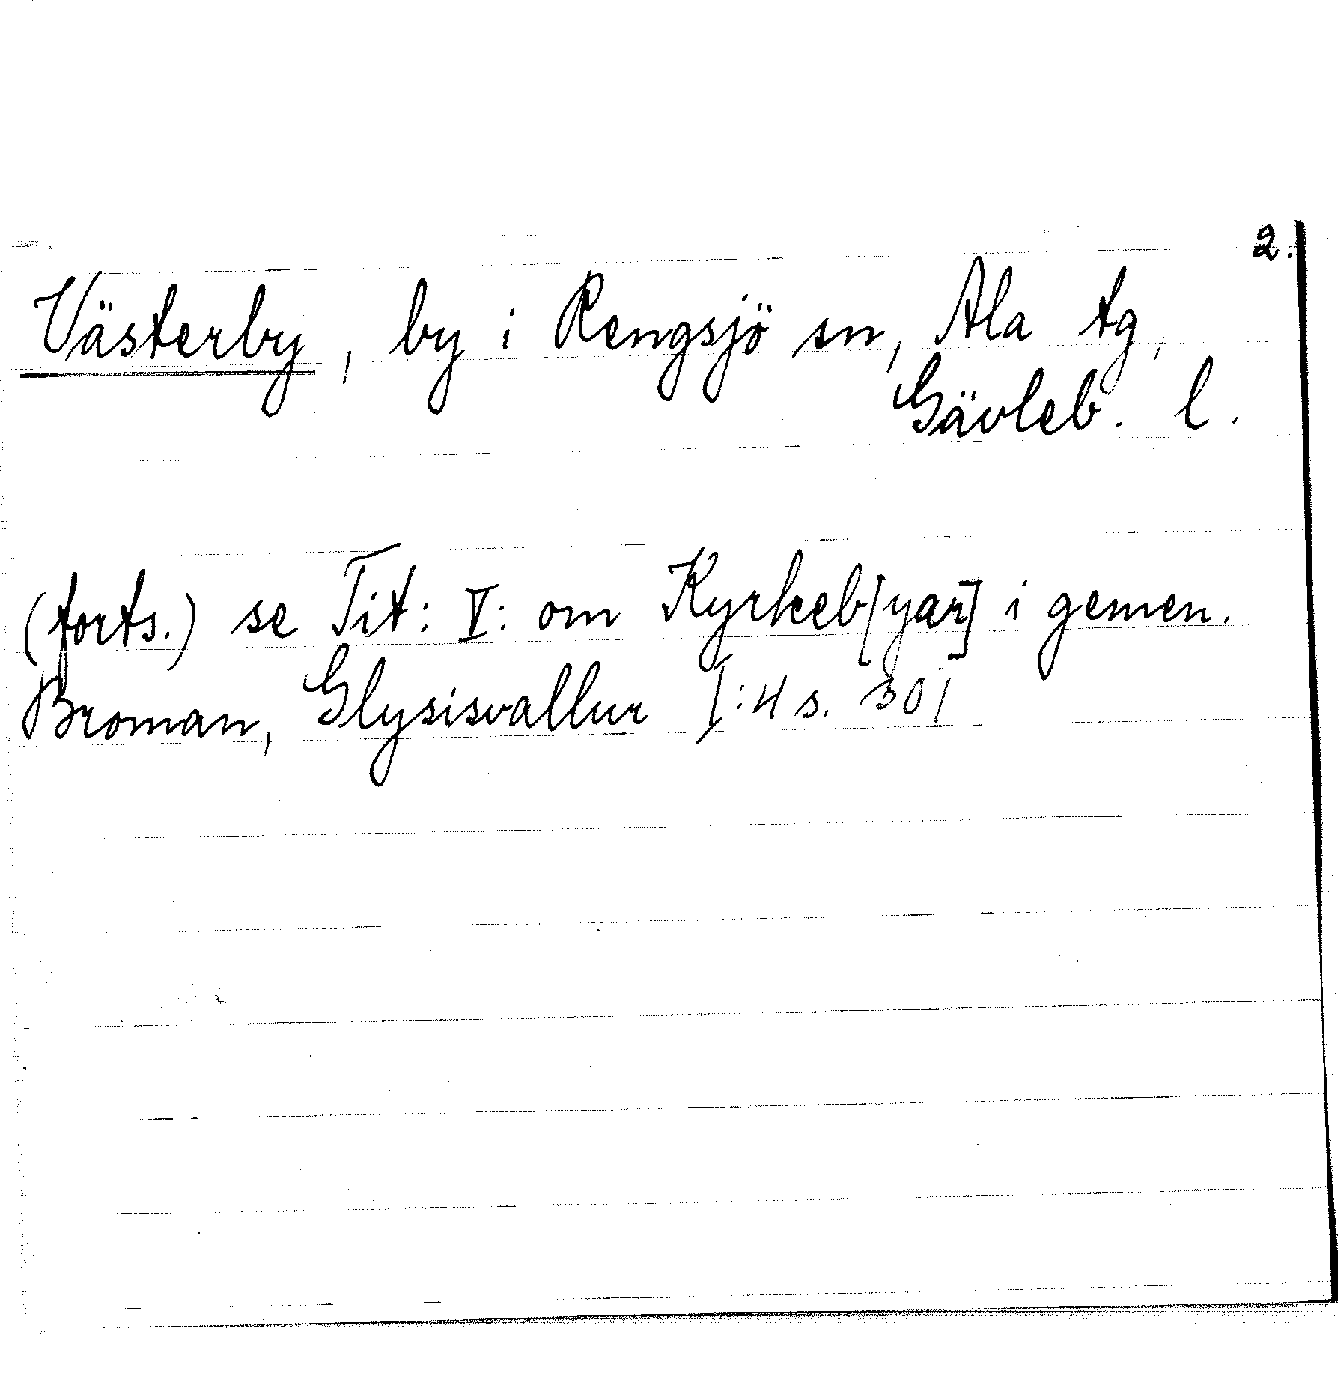 2.
Västerby, by i Rengsjö sn, Ala tg,
Gävleb. l.
(forts.) se Tit: V: om Kyrkeb[yar] i gemen.
Broman, Glysisvallur I:4 s. 301